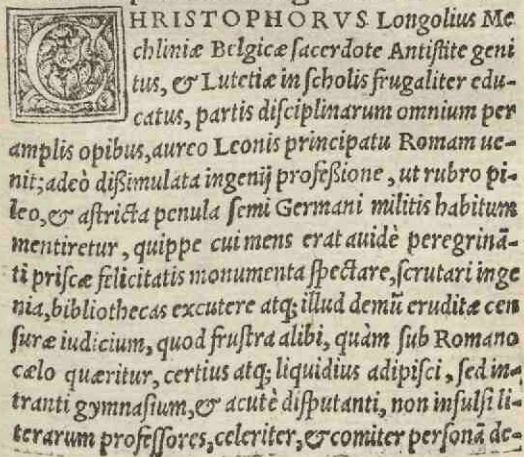 CHRISTOPHORVS Longolius Me
chliniæ Belgicæ sacerdote Antistite geni
tus, & Lutetiæ in scholis frugaliter edu-
catus, partis disciplinarum omnium per
amplis opibus, aureo Leonis principatu Romam ue-
nit; adeò dissimulata ingenij professione, ut rubro pi-
leo, & astricta penula semi Germani militis habitum
mentiretur, quippe cui mens erat auidè peregrinā-
ti priscæ felicitatis monumenta spectare, scrutari inge
nia, bibliothecas excutere atq; illud demū eruditæ cen
suræ iudicium, quod frustra alibi, quàm sub Romano
cælo quæritur, certius atq; liquidius adipisci, sed in-
tranti gymnasium, & acutè disputanti, non insulsi li-
terarum professores, celeriter, & comiter personā de-